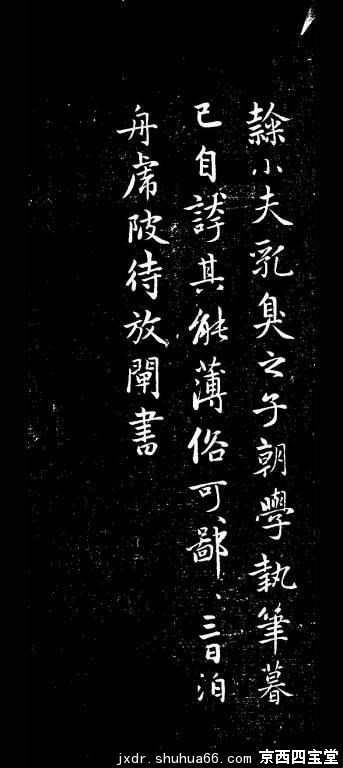 隷小夫乳臭之子朝學執筆暮
已自誇其能薄俗可〻鄙〻三日泊
舟虎陂待放閘書
jxdr.shuhua66.com
京西四宝堂